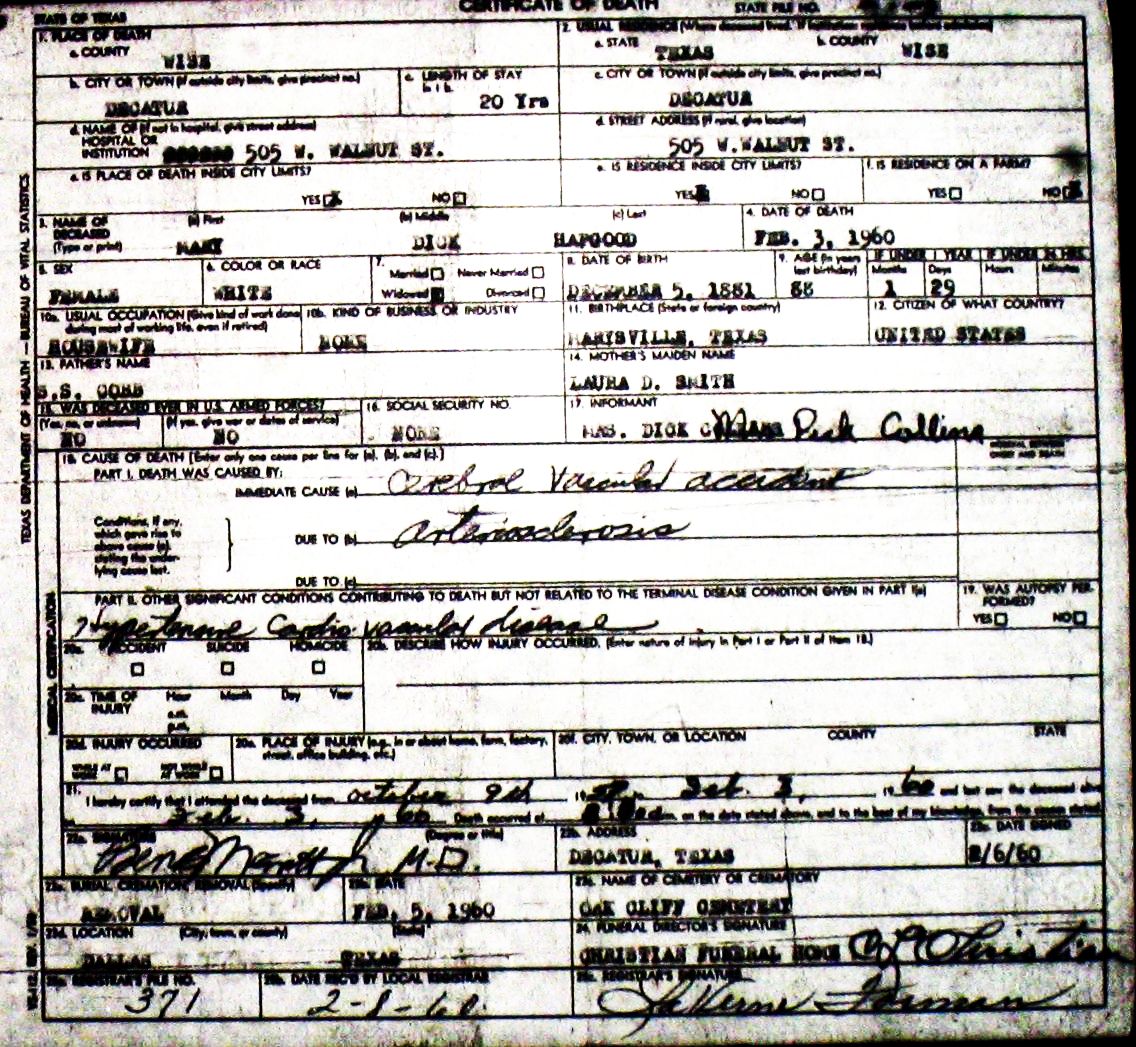 CERTIFICATE OF DEATH
STATE OF TEXAS STATE FILE NO.
1. PLACE OF DEATH 2. USUAL RESIDENCE (Where deceased lived. If institution: residence before admission)
a. COUNTY WISE a. STATE TEXAS b. COUNTY WISE
b. CITY OR TOWN (If outside city limits, give precinct no.) c. LENGTH OF STAY in 1 b. c. CITY OR TOWN (If outside city limits, give precinct no.)
DECATUR 20 Yrs DECATUR
d. NAME OF (If not in hospital, give street address) d. STREET ADDRESS (If rural, give location)
HOSPITAL OR
INSTITUTION 505 W. WALNUT ST. 505 W.WALNUT ST.
e. IS PLACE OF DEATH INSIDE CITY LIMITS? e. IS RESIDENCE INSIDE CITY LIMITS? f. IS RESIDENCE ON A FARM?
YES NO YES NO YES NO
3. NAME OF DECEASED (Type or print) (a) First (b) Middle (c) Last 4. DATE OF DEATH
MARY DICK HAPGOOD FEB. 3, 1960
5. SEX 6. COLOR OR RACE 7. Married Never Married 8. DATE OF BIRTH 9. AGE (In years last birthday) IF UNDER 1 YEAR IF UNDER 24 HRS.
Widowed Divorced Months Days Hours Minutes
FEMALE WHITE DECEMBER 5, 1881 1 29
10a. USUAL OCCUPATION (Give kind of work done during most of working life, even if retired) 10b. KIND OF BUSINESS OR INDUSTRY 11. BIRTHPLACE (State or foreign country) 12. CITIZEN OF WHAT COUNTRY?
HOUSEWIFE NONE MARYSVILLE, TEXAS UNITED STATES
13. FATHER'S NAME 14. MOTHER'S MAIDEN NAME
S.S. COBB LAURA D. SMITH
15. WAS DECEASED EVER IN U.S. ARMED FORCES? 16. SOCIAL SECURITY NO. 17. INFORMANT
(Yes, no, or unknown) (If yes, give war or dates of service)
NO NO NONE MRS. DICK Dick Collins
18. CAUSE OF DEATH [Enter only one cause per line for (a), (b), and (c).] INTERVAL BETWEEN ONSET AND DEATH
PART I. DEATH WAS CAUSED BY:
IMMEDIATE CAUSE (a) Cerebral Vascular accident
Conditions, if any, which gave rise to above cause (a), stating the underlying cause last.
DUE TO (b) Arteriosclerosis
DUE TO (c)
PART II. OTHER SIGNIFICANT CONDITIONS CONTRIBUTING TO DEATH BUT NOT RELATED TO THE TERMINAL DISEASE CONDITION GIVEN IN PART I(a) 19. WAS AUTOPSY PERFORMED?
Hypertensive Cardio vascular disease YES NO
20a. ACCIDENT SUICIDE HOMICIDE 20b. DESCRIBE HOW INJURY OCCURRED. (Enter nature of injury in Part I or Part II of item 18.)
20c. TIME OF INJURY Hour Month Day Year
a.m.
p.m.
20d. INJURY OCCURRED 20e. PLACE OF INJURY (e.g., in or about home, farm, factory, street, office building, etc.) 20f. CITY, TOWN, OR LOCATION COUNTY STATE
WHILE AT WORK NOT WHILE AT WORK
21. I hereby certify that I attended the deceased from October 9th 19 Feb. 3, 1960 and last saw the deceased alive
Feb. 3, 60 Death occurred at m. on the date stated above, and to the best of my knowledge, from the causes stated
22a. SIGNATURE (Degree or title) 22b. ADDRESS 22c. DATE SIGNED
M.D. DECATUR, TEXAS 2/6/60
23a. BURIAL, CREMATION, REMOVAL (Specify) 23b. DATE 23c. NAME OF CEMETERY OR CREMATORY
REMOVAL FEB. 5, 1960 OAK CLIFF CEMETERY
23d. LOCATION (City, town, or county) (State) 24. FUNERAL DIRECTOR'S SIGNATURE
DALLAS TEXAS CHRISTIAN FUNERAL HOME Christian
25a. REGISTRAR'S FILE NO. 25b. DATE REC'D BY LOCAL REGISTRAR 25c. REGISTRAR'S SIGNATURE
371 2-8-60 LaVerne Forman
TEXAS DEPARTMENT OF HEALTH — BUREAU OF VITAL STATISTICS
MEDICAL CERTIFICATION